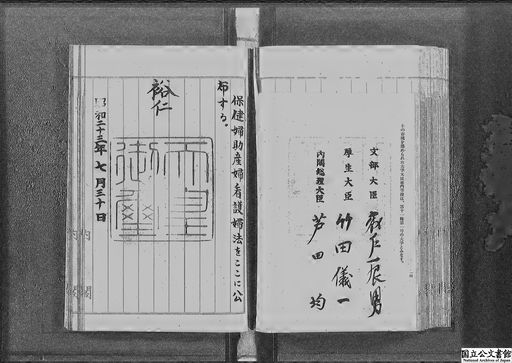 文部大臣 森戸辰男
厚生大臣 竹田儀一
内閣総理大臣 芦田均
保健婦助産婦看護婦法をここに公
布する。
裕仁
天皇
御璽
昭和二十三年七月三十日
内閣
内閣
国立公文書館
National Archives of Japan